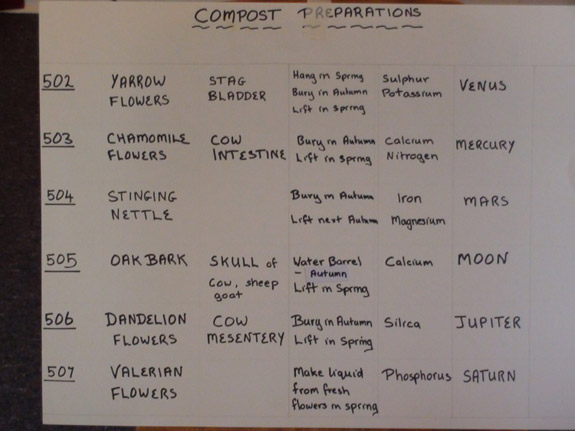 COMPOST PREPARATIONS
502 YARROW FLOWERS STAG BLADDER Hang in Spring Bury in Autumn Lift in Spring Sulphur Potassium VENUS
503 CHAMOMILE FLOWERS COW INTESTINE Bury in Autumn Lift in Spring Calcium Nitrogen MERCURY
504 STINGING NETTLE Bury in Autumn Lift next Autumn Iron Magnesium MARS
505 OAK BARK SKULL of Cow, sheep goat Water Barrel - Autumn Lift in Spring Calcium MOON
506 DANDELION FLOWERS COW MESENTERY Bury in Autumn Lift in Spring Silica JUPITER
507 VALERIAN FLOWERS Make liquid from fresh flowers in spring Phosphorus SATURN